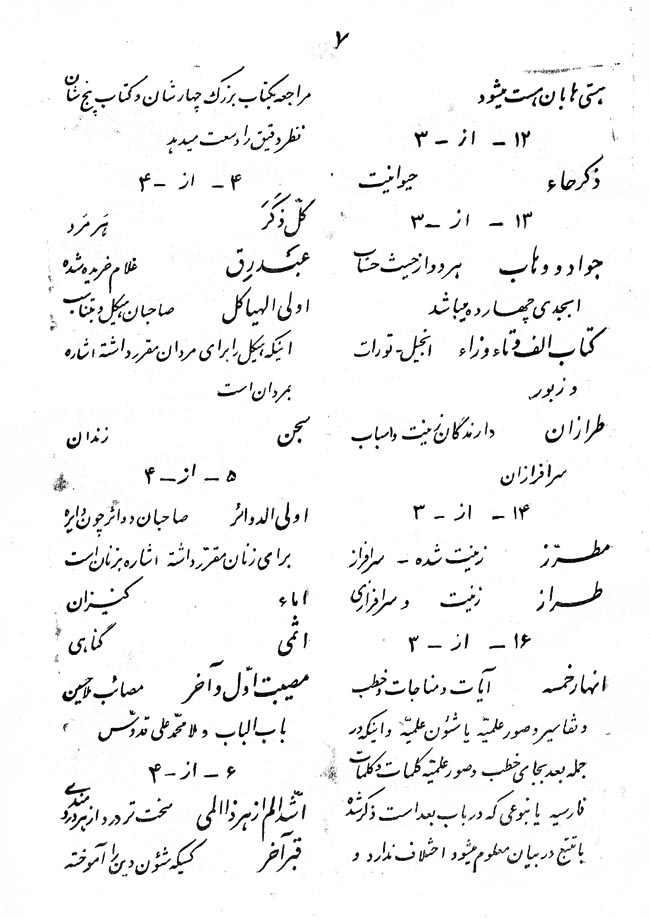 ۷
هستی ها بان هست میشود
۱۲ - از - ۳
ذکر حاء حیوانیت
۱۳ - از - ۳
جواد و وهاب هردو از حیث حساب
ابجدی چهارده میباشد
کتاب الف و تاء و زاء انجیل - تورات
و زبور
طرازان دارندگان زینت و اسباب
سرافرازان
۱۴ - از - ۳
مطرّز زینت شده - سرافراز
طراز زینت و سرافرازی
۱۶ - از - ۳
انهار خمسه آیات و مناجات و خطب
و تفاسیر و صور علمیّه یا شئون علمیّه و اینکه در
جمله بعد بجای خطب و صور علمیّه کلمات و کلمات
فارسیه یا بنوعی که در باب بعد است ذکر شده
با تتبّع در بیان معلوم میشود اختلاف ندارد و
مراجعه بکتاب بزرگ چهار شان و کتاب پنج شان
نظر دقیق را دست میدهد
۴ - از - ۴
کلّ ذَکَرَ هر مرد
عبد رِق غلام خریده شده
اولی الهیاکل صاحبان هیکل و بتناسب
اینکه هیکل را برای مردان مقرر داشته اشاره
بمردان است
سجن زندان
۵ - از - ۴
اولی الدوائر صاحبان دوائر چون دایره
برای زنان مقرّر داشته اشاره بزنان است
اماء کنیزان
اثمی گناهی
مصیبت اوّل و آخر مصائب ملاحسین
باب الباب و ملا محمّد علی قدّوس
۶ - از - ۴
اشّد الم از هر ذا المی سخت تر درد از هر دردمندی
قبر آخر کسیکه شئون دین را آموخته